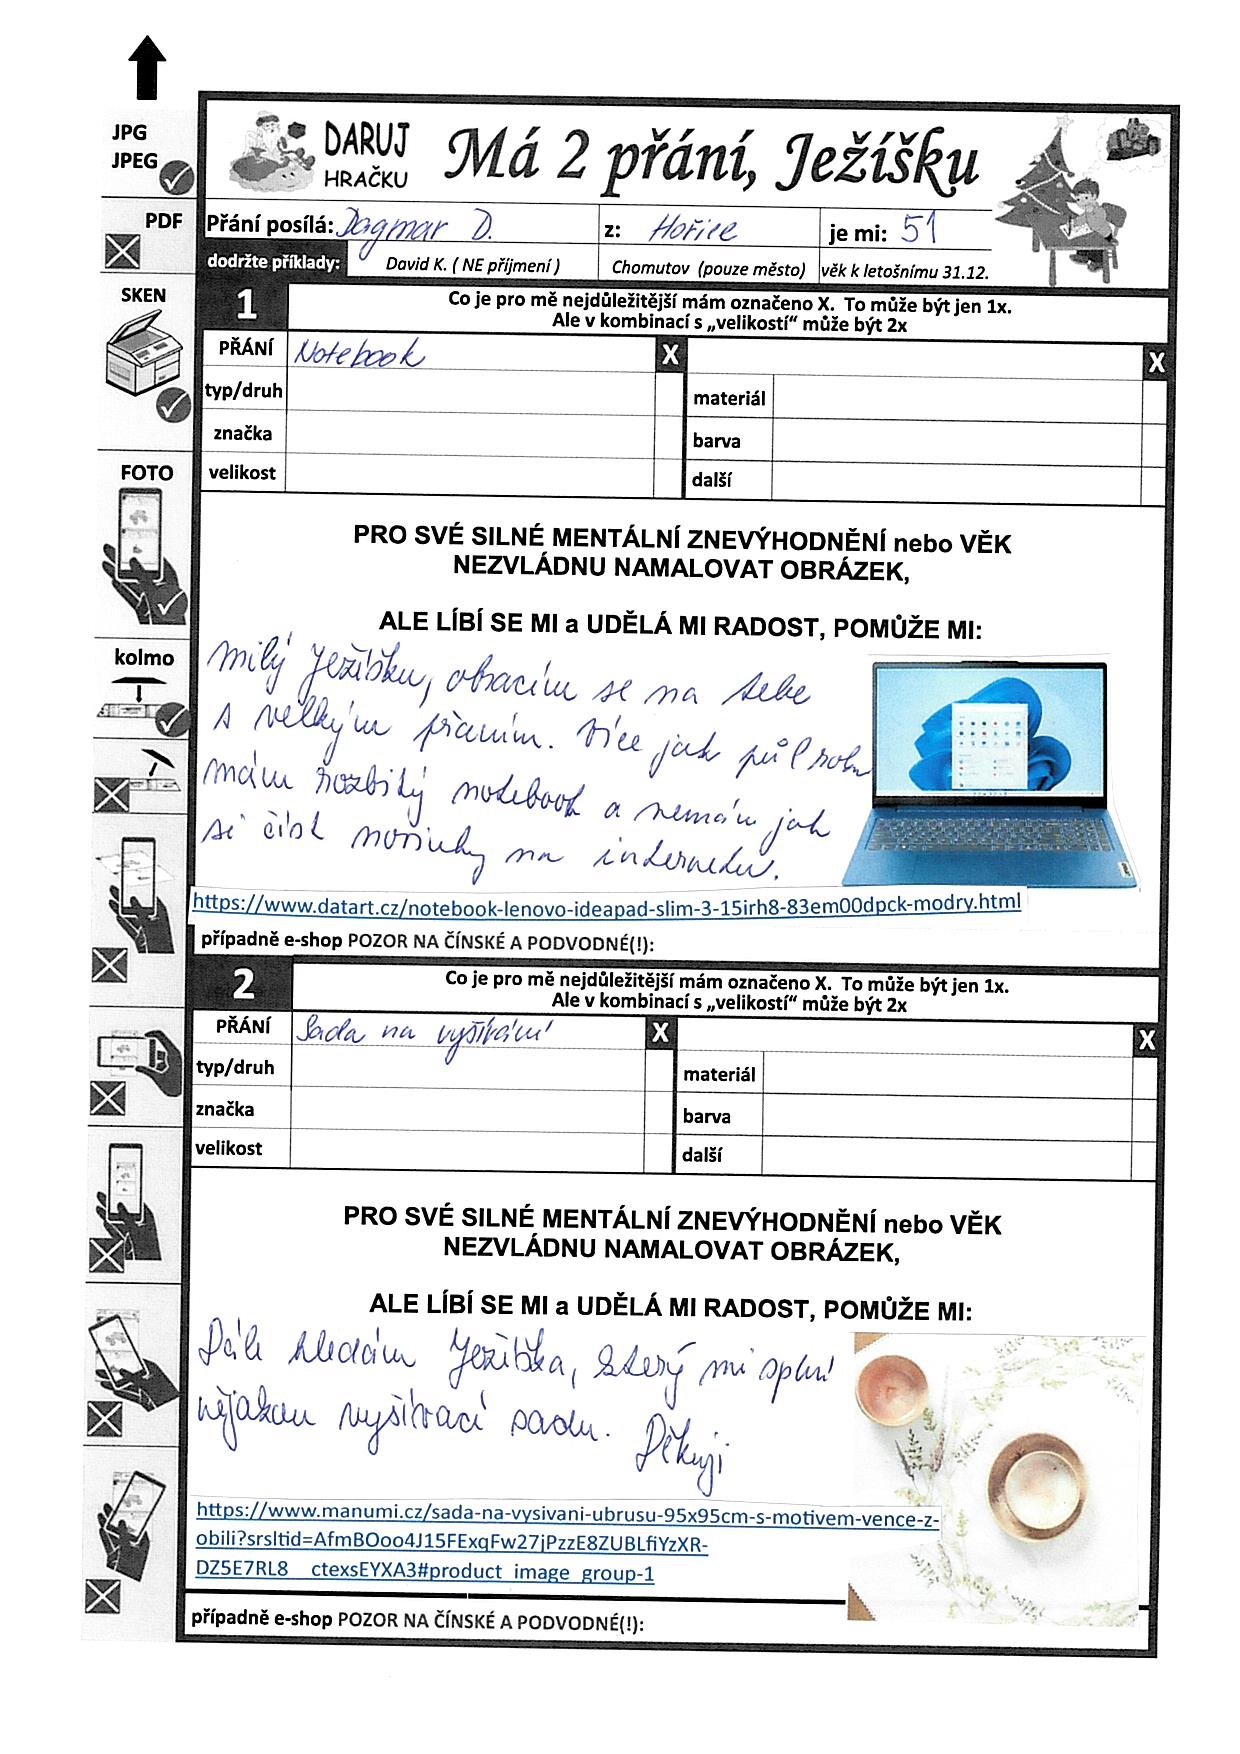 JPG
JPEG
PDF
SKEN
FOTO
kolmo
DARUJ
HRAČKU
Má 2 přání, Ježíšku
Přání posílá: Dagmar D. z: Hořice je mi: 51
dodržte příklady: David K. ( NE příjmení ) Chomutov (pouze město) věk k letošnímu 31.12.
1 Co je pro mě nejdůležitější mám označeno X. To může být jen 1x.
Ale v kombinací s „velikostí“ může být 2x
PŘÁNÍ Notebook X X
typ/druh materiál
značka barva
velikost další
PRO SVÉ SILNÉ MENTÁLNÍ ZNEVÝHODNĚNÍ nebo VĚK
NEZVLÁDNU NAMALOVAT OBRÁZEK,
ALE LÍBÍ SE MI a UDĚLÁ MI RADOST, POMŮŽE MI:
Milý Ježíšku, obracím se na tebe
s velkým přáním. Více jak půl roku
mám rozbitý notebook a nemám jak
si číst novinky na internetu.
https://www.datart.cz/notebook-lenovo-ideapad-slim-3-15irh8-83em00dpck-modry.html
případně e-shop POZOR NA ČÍNSKÉ A PODVODNÉ(!):
2 Co je pro mě nejdůležitější mám označeno X. To může být jen 1x.
Ale v kombinací s „velikostí“ může být 2x
PŘÁNÍ Sada na vyšívání X X
typ/druh materiál
značka barva
velikost další
PRO SVÉ SILNÉ MENTÁLNÍ ZNEVÝHODNĚNÍ nebo VĚK
NEZVLÁDNU NAMALOVAT OBRÁZEK,
ALE LÍBÍ SE MI a UDĚLÁ MI RADOST, POMŮŽE MI:
Dále hledám Ježíška, který mi splní
nějakou vyšívací sadu. Děkuji
https://www.manumi.cz/sada-na-vysivani-ubrusu-95x95cm-s-motivem-vence-z-
obili?srsltid=AfmBOoo4J15FExqFw27jPzzE8ZUBLfiYzXR-
DZ5E7RL8__ctexsEYXA3#product_image_group-1
případně e-shop POZOR NA ČÍNSKÉ A PODVODNÉ(!):